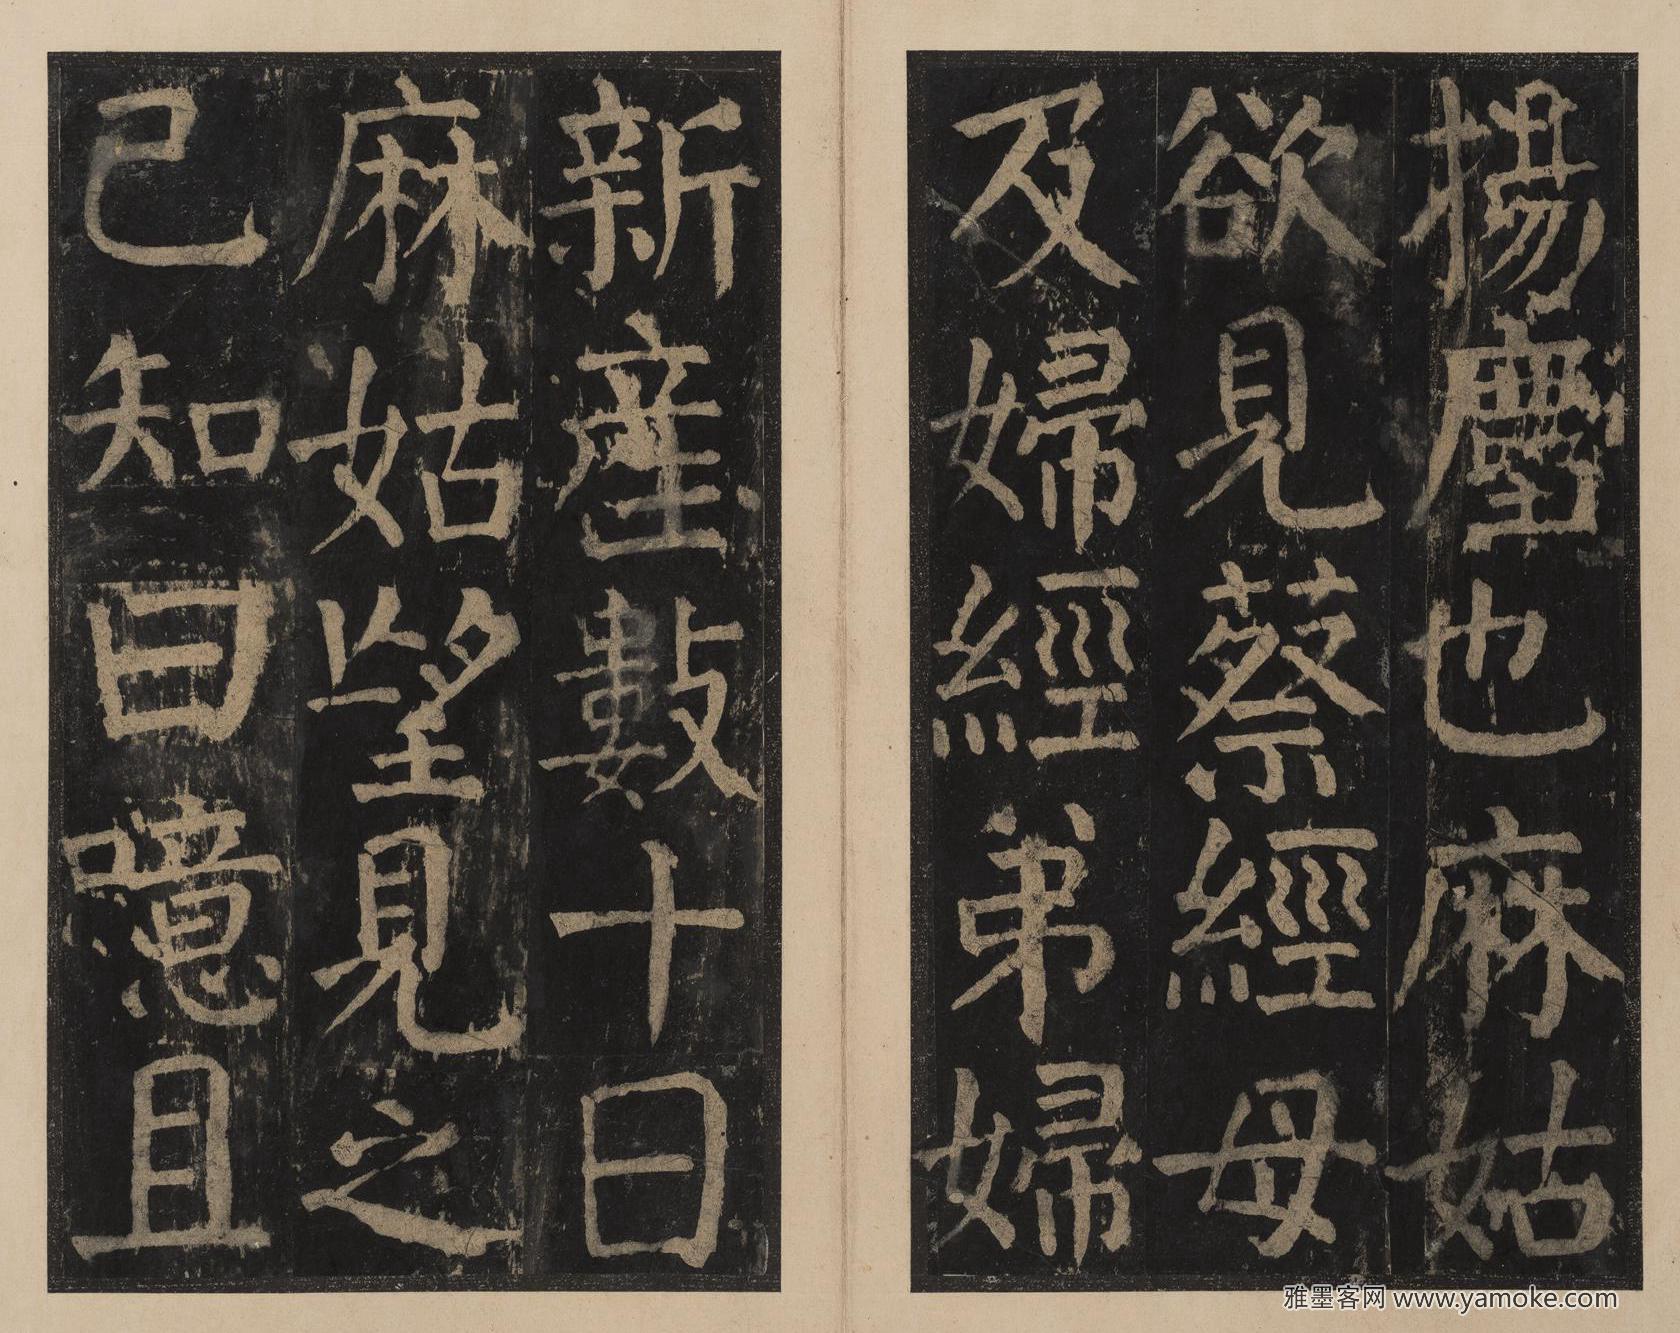 揚塵也麻姑
欲見蔡經母
及婦經弟婦
新產數十日
麻姑望見之
已知曰噫且
雅墨客网 www.yamoke.com